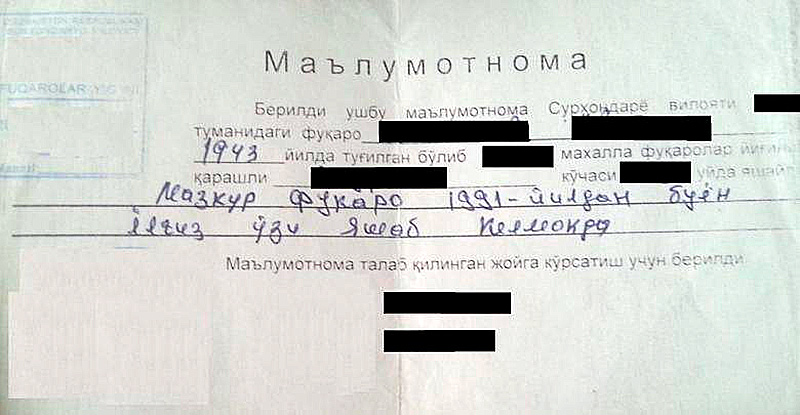 FUQAROLAR YIG'INI
Маълумотнома
Берилди ушбу маълумотнома Сурхондарё вилояти
туманидаги фуқаро
1943 йилда туғилган бўлиб махалла фуқаролар йиғин
қарашли кўчаси уйда яшайд
Мазкур фуқаро 1991-йилдан буён
ёлғиз ўзи яшаб келмоқда
Маълумотнома талаб қилинган жойга кўрсатиш учун берилди